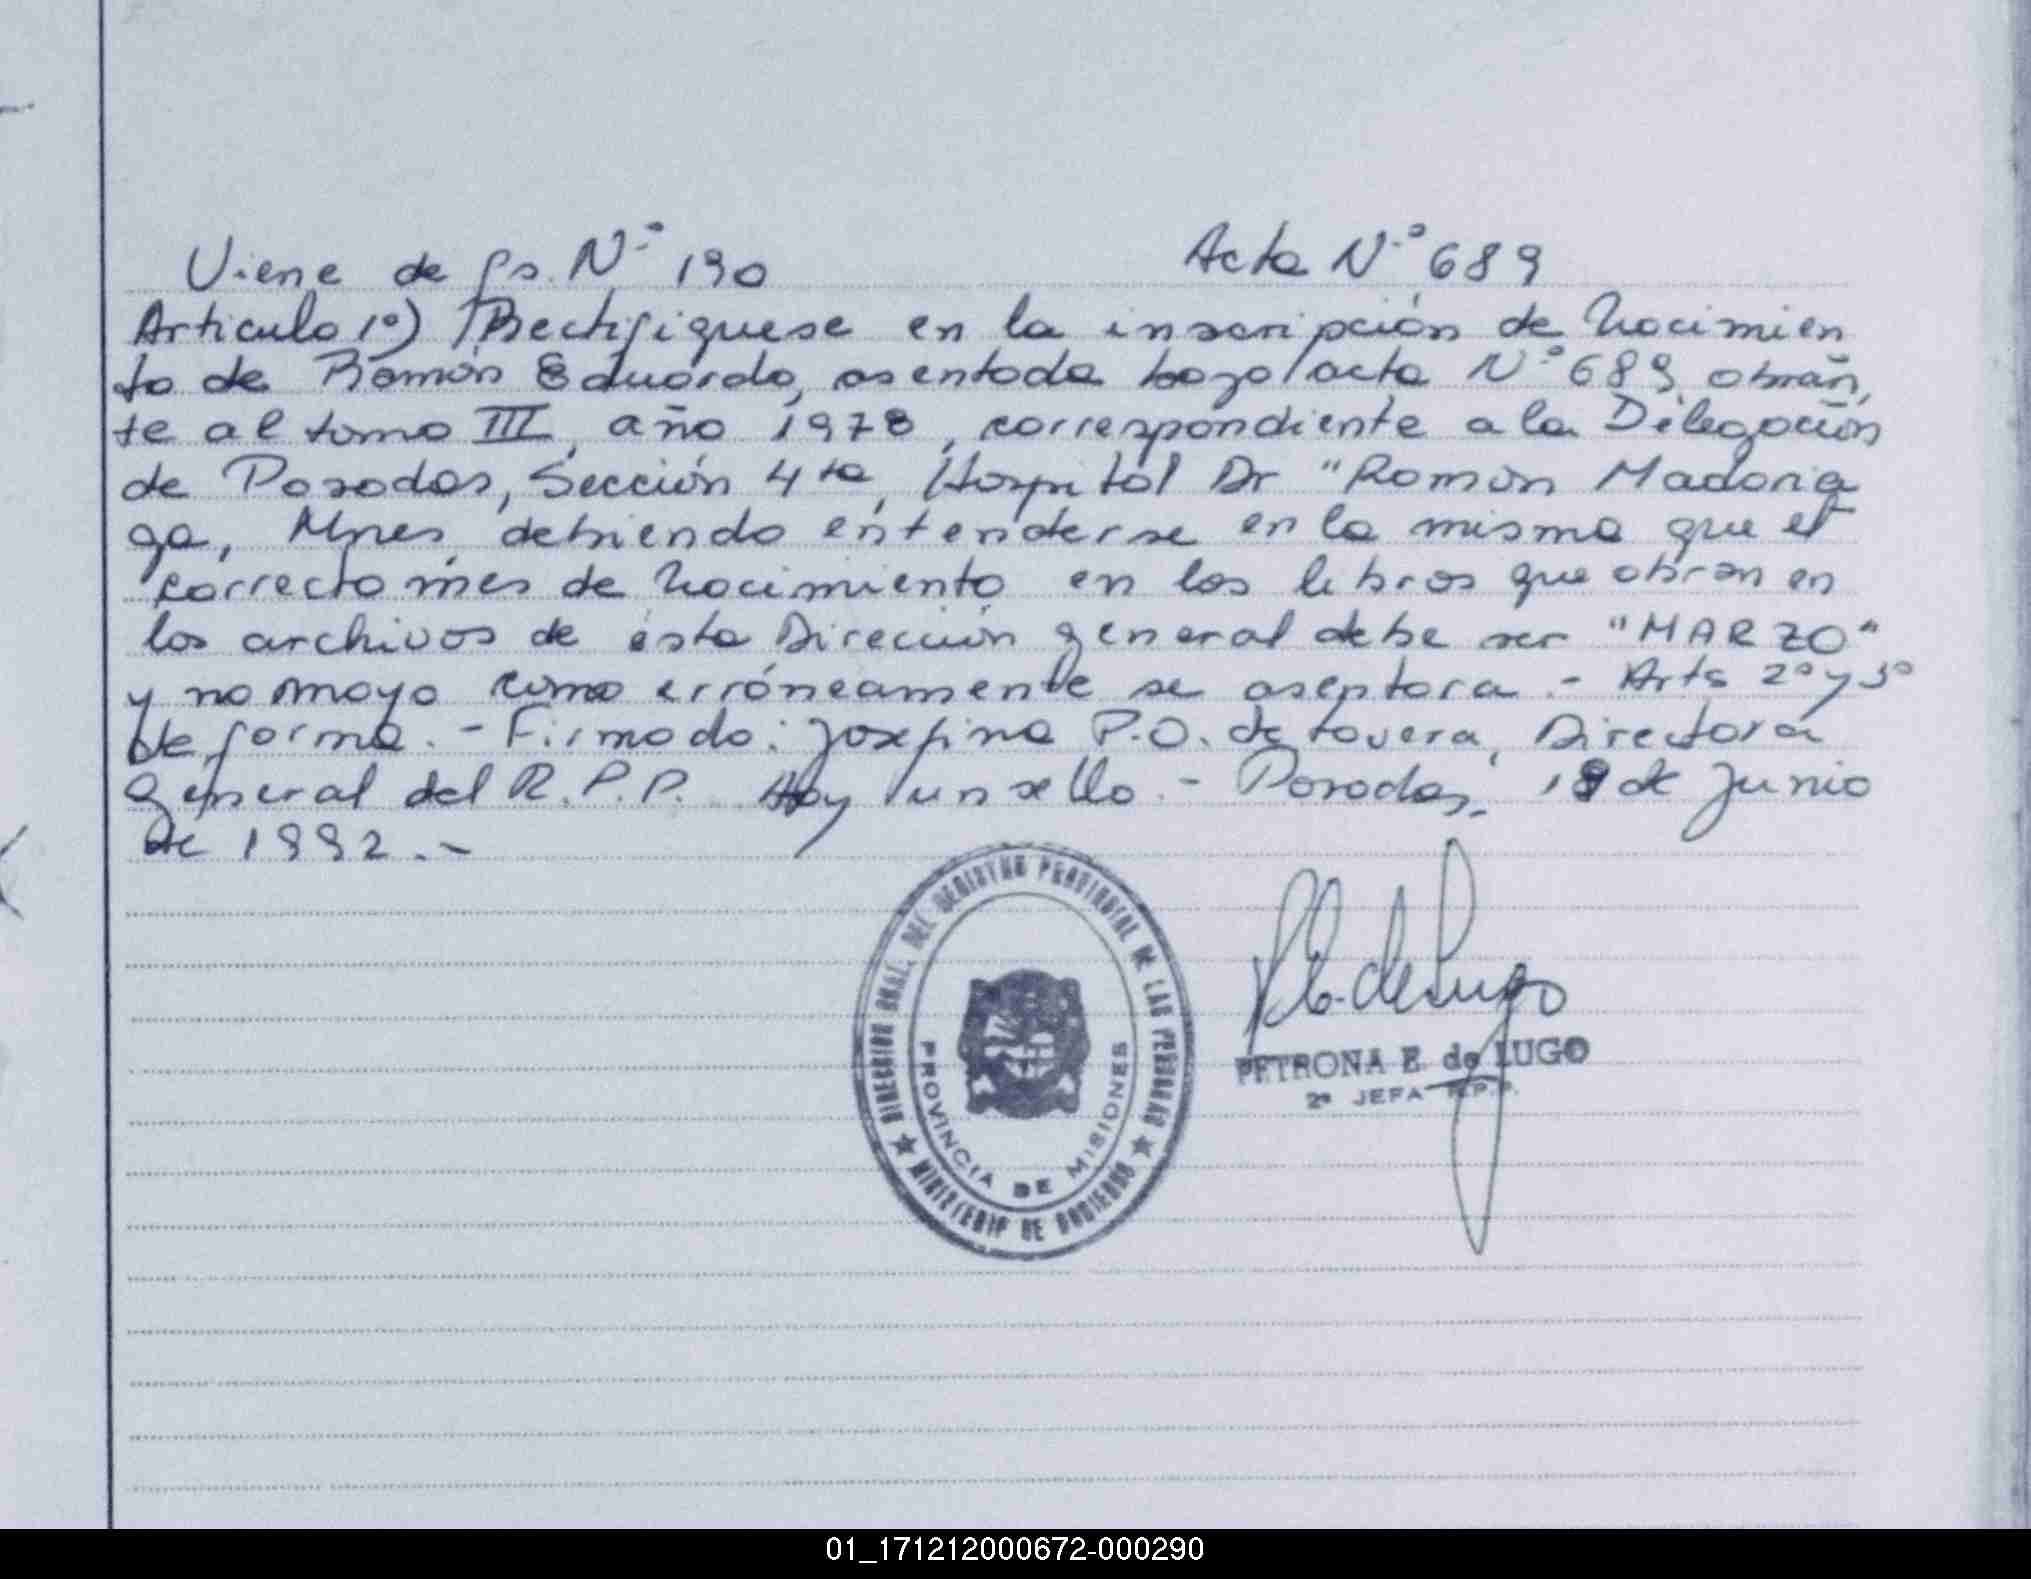 Viene de fs. N° 190 Acta N° 689
Articulo 1°) Rectifiquese en la inscripción de Nacimien
to de Ramón Eduardo, asentada bajo acta N° 689 obran
te al tomo III, año 1978, correspondiente a la Delegación
de Posadas, Sección 4ta, Hospital Dr "Ramón Madaria
ga, Mnes, debiendo entenderse en la misma que el
correcto mes de Nacimiento en los libros que obran en
los archivos de ésta Dirección general debe ser "MARZO"
y no mayo como erróneamente se asentara.- Arts 2° y 3°
de forma.- Firmado: Josefina P.O. de Tovera, Directora
General del R.P.P. Hay un sello.- Posadas, de Junio
de 1992.-
DIRECCION GRAL. DEL REGISTRO PROVINCIAL DE LAS PERSONAS
PROVINCIA DE MISIONES
MINISTERIO DE GOBIERNO
P E. de Lugo
PETRONA E de LUGO
2° JEFA R.P.P.
01_171212000672-000290